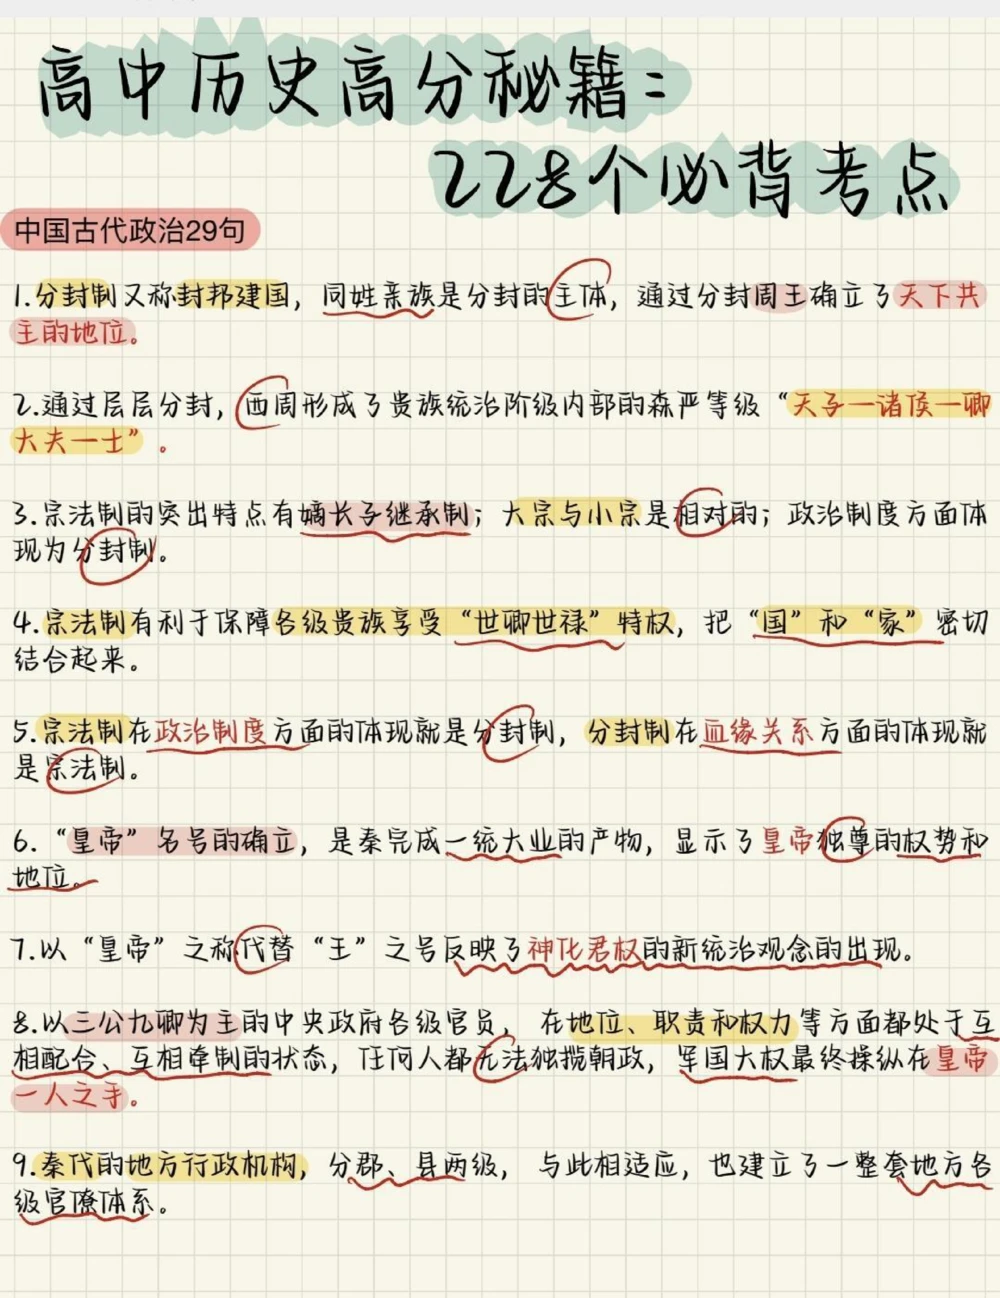 高中历史高分秘籍:
228个必背考点
中国古代政治29句
1.分封制又称封邦建国，同姓亲族是分封的主体，通过分封周王确立了天下共
主的地位。
2.通过层层分封，西周形成了贵族统治阶级内部的森严等级“天子一诸侯一卿
大夫一士”。
3.宗法制的突出特点有嫡长子继承制；大宗与小宗是相对的；政治制度方面体
现为分封制。
4.宗法制有利于保障各级贵族享受“世卿世禄”特权，把“国”和“家”密切
结合起来。
5.宗法制在政治制度方面的体现就是分封制，分封制在血缘关系方面的体现就
是宗法制。
6.“皇帝”名号的确立，是秦完成一统大业的产物，显示了皇帝独尊的权势和
地位。
7.以“皇帝”之称代替“王”之号反映了神化君权的新统治观念的出现。
8.以三公九卿为主的中央政府各级官员，在地位、职责和权力等方面都处于互
相配合、互相牵制的状态，任何人都无法独揽朝政，军国大权最终操纵在皇帝
一人之手。
9.秦代的地方行政机构，分郡、县两级，与此相适应，也建立了一整套地方各
级官僚体系。